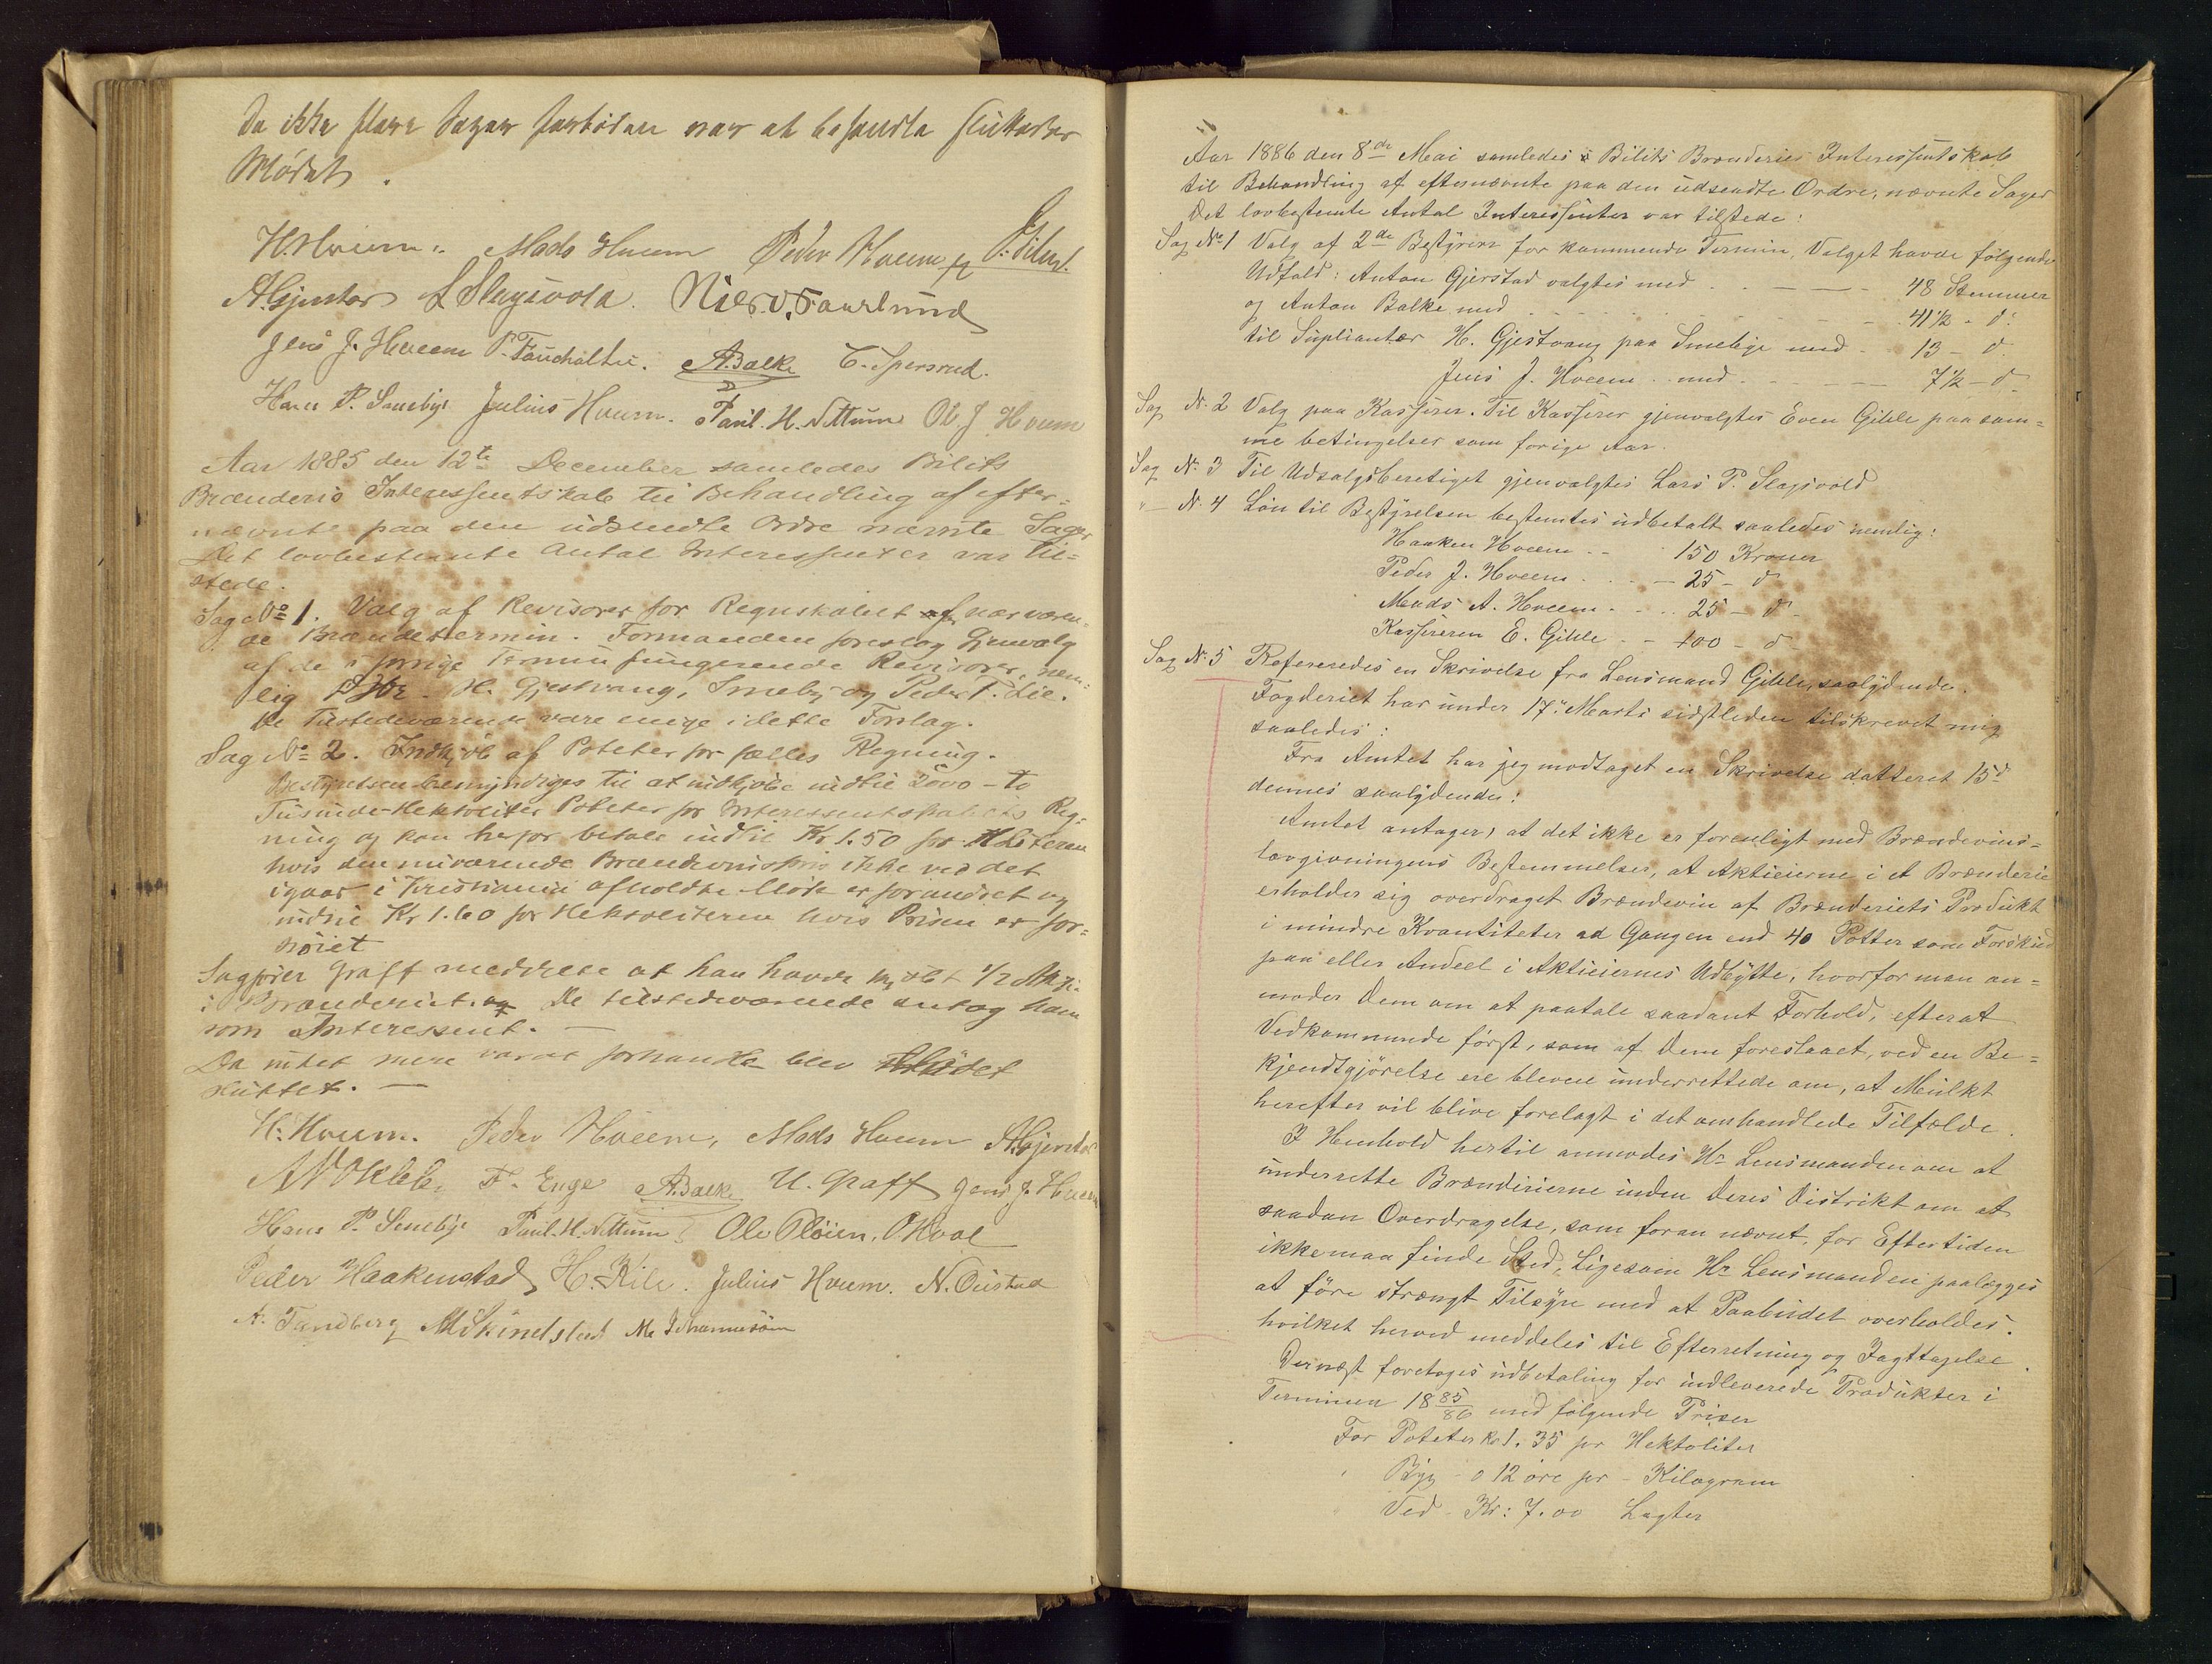 Da ikke flere Sager forböden var at behandle sluttedes
Mödet.
H. Hveem. Mads Hveem Peder Hveem
A. Gjerstad L. Slagsvold. Niels
Jens J. Hveem P. Fauchaltn. A. Balke C. Spersrud.
Hans P. Smebÿe Julius Hveem. Paul. H. Nettum Ole J. Hveem
Aar 1885 den 12te December samledes Bilits
Brænderis Interessentskab til Behandling af efter-
nævnte paa den udsendte Ordre nævnte Sager
Det lovbestemte Antal Interessenter var til-
stede.
Sag No 1. Valg af Revisorer for Regnskabet af nærværen-
de Brændetermin. Formanden foreslog Gjenvalg
af de i forrige Termin fungerende Revisorer, nem-
lig H. Gjestvang, Smeby og Peder T. Lie.
De Tilstedeværende vare enige i dette Forslag.
Sag No 2. Indkjöb af Poteter for fælles Regning.
Bestyrelsen bemyndiges til at indkjöbe indtil 2000 - to
Tusinde Hektoliter Poteter for Interessentskabets Reg-
ning og kan herfor betale indtil Kr 1.50 for Hliteren
hvis den nuværende Brændevinspris ikke ved det
igaar i Kristiania afholdte Möde er forandret og
indtil Kr 1.60 for Hektoliteren hvis Prisen er for-
höiet
Sagförer Graff meddelte at han havde kjöbt 1/2 Aktie
i Brænderiet. og De tilstedeværende antog ham
som Interessent. —
Da intet mere var at forhandle blev Mödet
sluttet. —
H. Hveem. Peder Hveem, Mads Hveem A. Gjerstad
F. Enge A. Balke U. Graff Jens J. Hveem
Hans P. Smebÿe Paul. H. Nettum Ole Pløien. O Hoel
Peder Haakenstad H. Kile. Julius Hveem. N. Oustad
A. Tandberg M Skindstad M. Johannesön
Aar 1886 den 8de Mai samledes i Bilits Brænderies Interessentskab
til Behandling af efternævnte paa den udsendte Ordre, nævnte Sager
Det lovbestemte Antal Interessenter var tilstede:
Sag No 1 Valg af 2de Bestÿrere for kommende Termin, Valget havde fölgende
Udfald: Anton Gjerstad valgtes med . . — — — 48 Stemmer
og Anton Balke med . . . . . . — — 41 1/2 - d:
til Supliantær H. Gjestvang paa Smebÿe med - 13 - d.
Jens J. Hveem . med . . . — — 7 1/2 - d
Sag N. 2 Valg paa Kasserer. Til Kasserer gjenvalgtes Even Gihle paa sam=
me betingelser som forige Aar.
Sag N. 3 Til Udsalgsberetiget gjenvalgtes Lars P. Slagsvold
" — N. 4 Lön til Bestÿrelsen bestemtes udbetalt saaledes nemlig:
Haaken Hveem . - . 150 Kroner
Peder J. Hveem . . . - 25 - d
Mads A. Hveem - . . . 25 - d -
Kassereren E. Gihle . - 100 - d
Sag N. 5 Refereredes en Skrivelse fra Lensmand Gihle, saalÿdende.
Fogderiet har under 17. Marts sidstleden tilskrevet mig
saaledes:
Fra Amtet har jeg modtaget en Skrivelse datteret 15d
dennes saalÿdendes:
Amtet antager, at det ikke er forenligt med Brændevins=
lovgivningens Bestemmelser, at Aktieierne i et Brænderie
erholder sig overdraget Brændevin af Brænderiets Produkt
i mindre Kvantiteter ad Gangen end 40 Potter som Forskud
paa eller Andeel i Aktieiernes Udbÿtte, hvorfor man an=
moder Dem om at paatale saadant Forhold, efterat
Vedkommende först, som af Dem foreslaaet, ved en Be=
kjendtgjörelse ere blevne underrettede om, at Mulkt
herefter vil blive forelagt i det omhandlede Tilfælde.
I Henhold hertil anmodes Hr. Lensmanden om at
underrette Brænderierne inden Deres Distrikt om at
saadan Overdragelse, som foran nævnt, for Eftertiden
ikke maa finde Sted, Ligesom Hr. Lensmanden paalægges
at före strængt Tilsÿn med at Paabudet overholdes.
hvilket herved meddeles til Efterretning og Iagttagelse.
Dernæst foretoges udbetaling for indleverede Produkter i
Terminen 1885/86 med fölgende Priser
For Poteter kr 1. 35 pr Hektoliter
" Bÿg - 0 12 öre pr - Kilogram
Ved - Kr: 7.00 Lagter